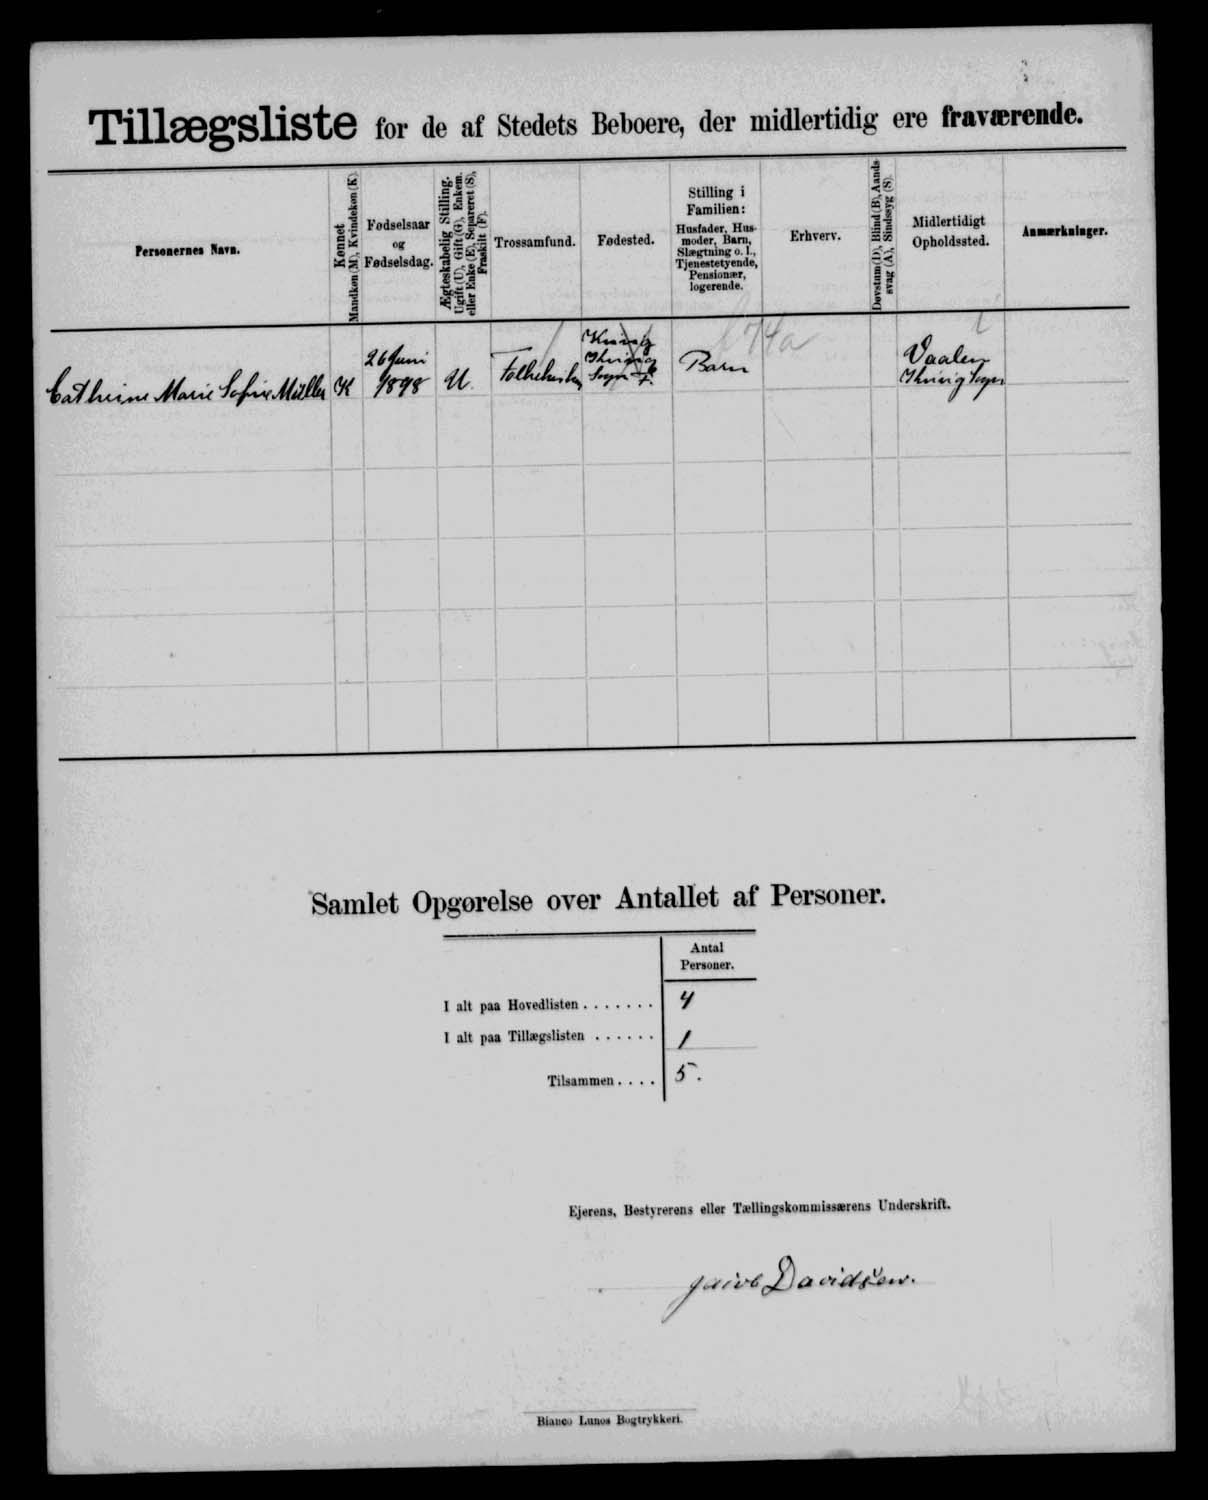 Tillægsliste for de af Stedets Beboere, der midlertidig ere fraværende.
Personernes Navn.
Kønnet
Mandkøn (M), Kvindekøn (K).
Fødselsaar
og
Fødselsdag.
Ægteskabelig Stilling.
Ugift (U), Gift (G), Enkem.
eller Enke (E), Separeret (S),
Fraskilt (F).
Trossamfund.
Fødested.
Stilling i
Familien:
Husfader, Hus-
moder, Barn,
Slægtning o. l.,
Tjenestetyende,
Pensionær,
logerende.
Erhverv.
Døvstum (D), Blind (B), Aands-
svag (A), Sindssyg (S).
Midlertidigt
Opholdssted.
Anmærkninger.
Cathrine Marie Sofie Müller
K
26 Juni
1898
U.
Folkekirken
Sogn
Barn
74a
Sogn
Samlet Opgørelse over Antallet af Personer.
Antal
Personer.
I alt paa Hovedlisten . . . . . . . 4
I alt paa Tillægslisten . . . . . . 1
Tilsammen . . . . 5.
Ejerens, Bestyrerens eller Tællingskommissærens Underskrift.
Davidsen.
Bianco Lunos Bogtrykkeri.